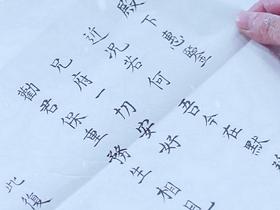 殿下惠鑒
近况若何吾今在黟
兄府一切安好
勸君保重務生相見
此復